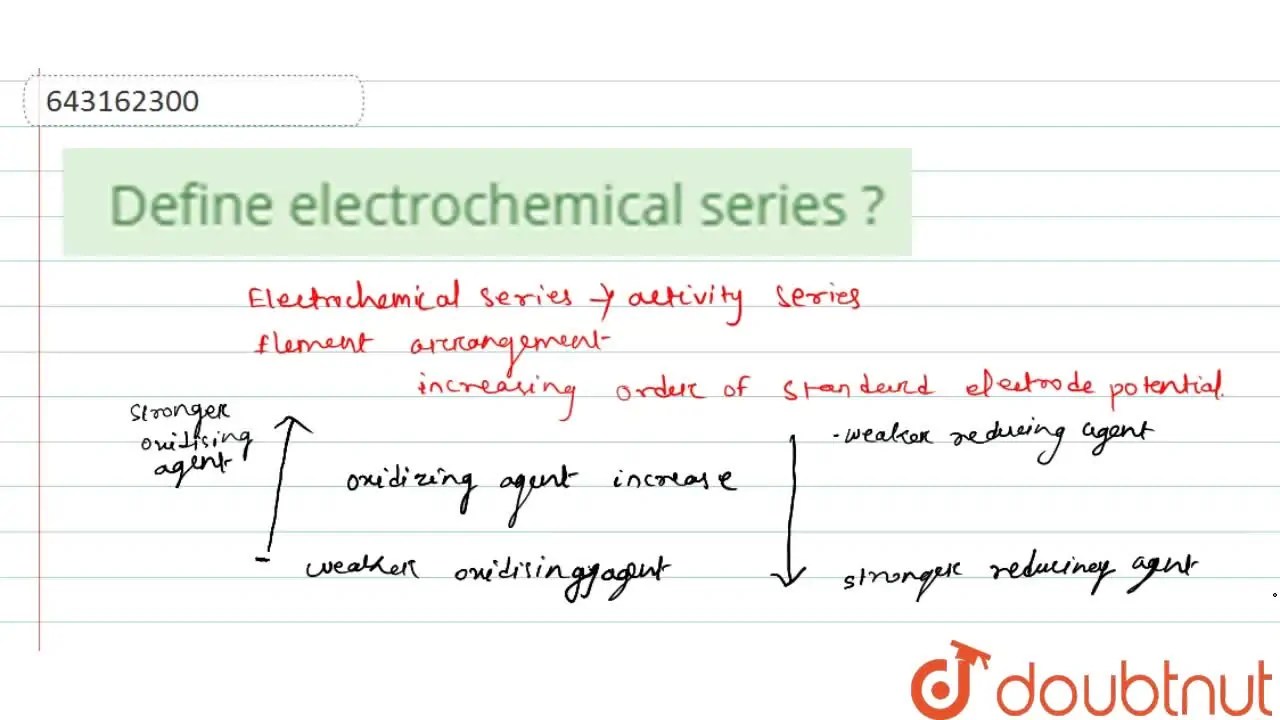 643162300
Define electrochemical series ?
Electrochemical series → activity series
Element arrangement
increasing order of standard electrode potential.
stronger
oxidising
agent
-weaker reducing agent
oxidizing agent increase
weaker oxidising agent
stronger reducing agent
doubtnut